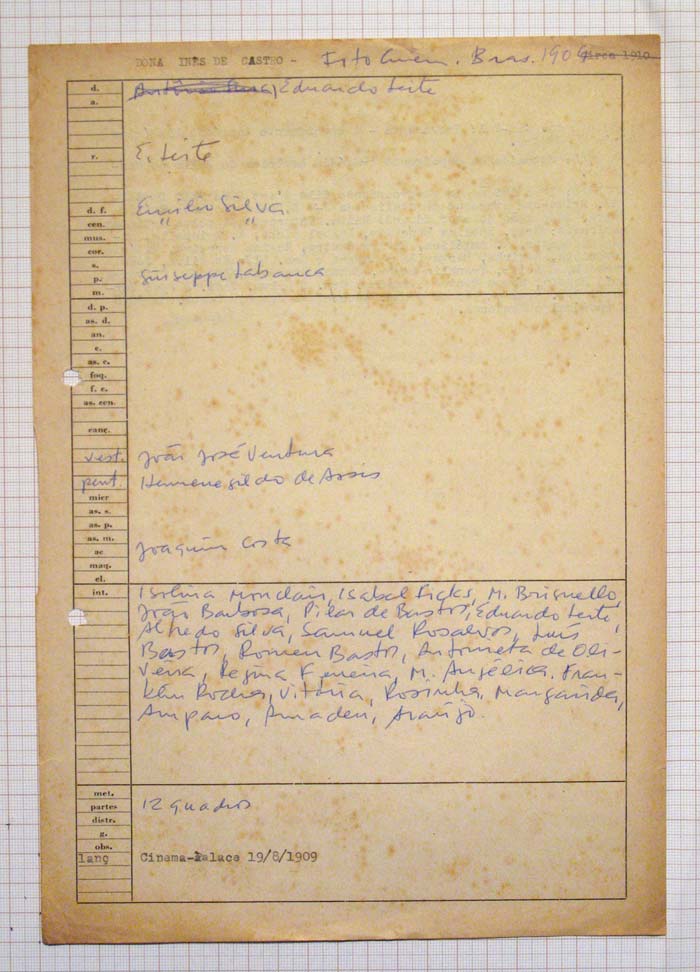 DONA INES DE CASTRO - Foto Cinem. Bras. 1909 Circa 1910
d. Eduardo Leite
a.
r. E. Leite
d. f. Emilio Silva
cen. " "
mus.
cor.
s.
p. Giuseppe Labanca
m.
d. p.
as. d.
an.
c.
as. c.
foq.
f. c.
as. cen.
canç.
vest. João José Ventura
pent. Hermenegildo de Assis
mier
as. s.
as. p.
as. m.
ac Joaquim Costa
maq.
el.
int. Isolina Monclair, Isabel Ficks, M. Brisuello,
João Barbosa, Pilar de Bastos, Eduardo Leite,
Alfredo Silva, Samuel Rosalvos, Luís
Bastos, Romeu Bastos, Antonieta de Oli-
veira, Regina Ferreira, M. Angélica, Fran-
klin Rocha, Vitória, Rosinha, Margarida,
Amparo, Amadeu, Araújo.
met.
partes 12 quadros
distr.
g.
obs.
lanç Cinema-Palace 19/8/1909